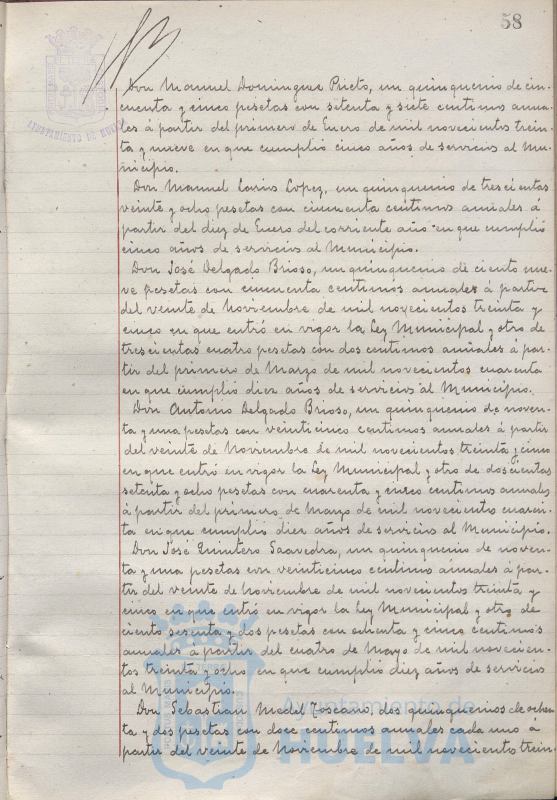 58
AYUNTAMIENTO DE HUELVA
Don Manuel Dominguez Prieto, un quinquenio de cin-
cuenta y cinco pesetas con setenta y siete centimos anua-
les á partir del primero de Enero de mil novecientos trein-
ta y nueve en que cumplió cinco años de servicios al Mu-
nicipio.
Don Manuel López, un quinquenio de trescientas
veinte y ocho pesetas con cincuenta centimos anuales á
partir del diez de Enero del corriente año en que cumplió
cinco años de servicios al Municipio.
Don José Delgado Brioso, un quinquenio de ciento nue-
ve pesetas con cincuenta centimos anuales á partir
del veinte de Noviembre de mil novecientos treinta y
cinco en que entró en vigor la Ley Municipal y otro de
trescientas cuatro pesetas con dos centimos anuales á par-
tir del primero de Marzo de mil novecientos cuarenta
en que cumplio diez años de servicios al Municipio.
Don Antonio Delgado Brioso, un quinquenio de noven-
ta y una pesetas con veinticinco centimos anuales á partir
del veinte de Noviembre de mil novecientos treinta y cinco
en que entró en vigor la Ley Municipal y otro de doscientas
setenta y ocho pesetas con cuarenta y cinco centimos anuales
á partir del primero de Marzo de mil novecientos cuaren-
ta en que cumplio diez años de servicios al Municipio.
Don José Quintero Saavedra, un quinquenio de noven-
ta y una pesetas con veinticinco centimos anuales á par-
tir del veinte de Noviembre de mil novecientos treinta y
cinco en que entró en vigor la Ley Municipal y otro de
ciento sesenta y dos pesetas con ochenta y cinco centimos
anuales á partir del cuatro de Mayo de mil novecien-
tos treinta y ocho en que cumplio diez años de servicios
al Municipio.
Don Sebastian Medel Toscano, dos quinquenios de ochen-
ta y dos pesetas con doce centimos anuales cada uno á
partir del veinte de Noviembre de mil novecientos trein-
Ayuntamiento de
HUELVA